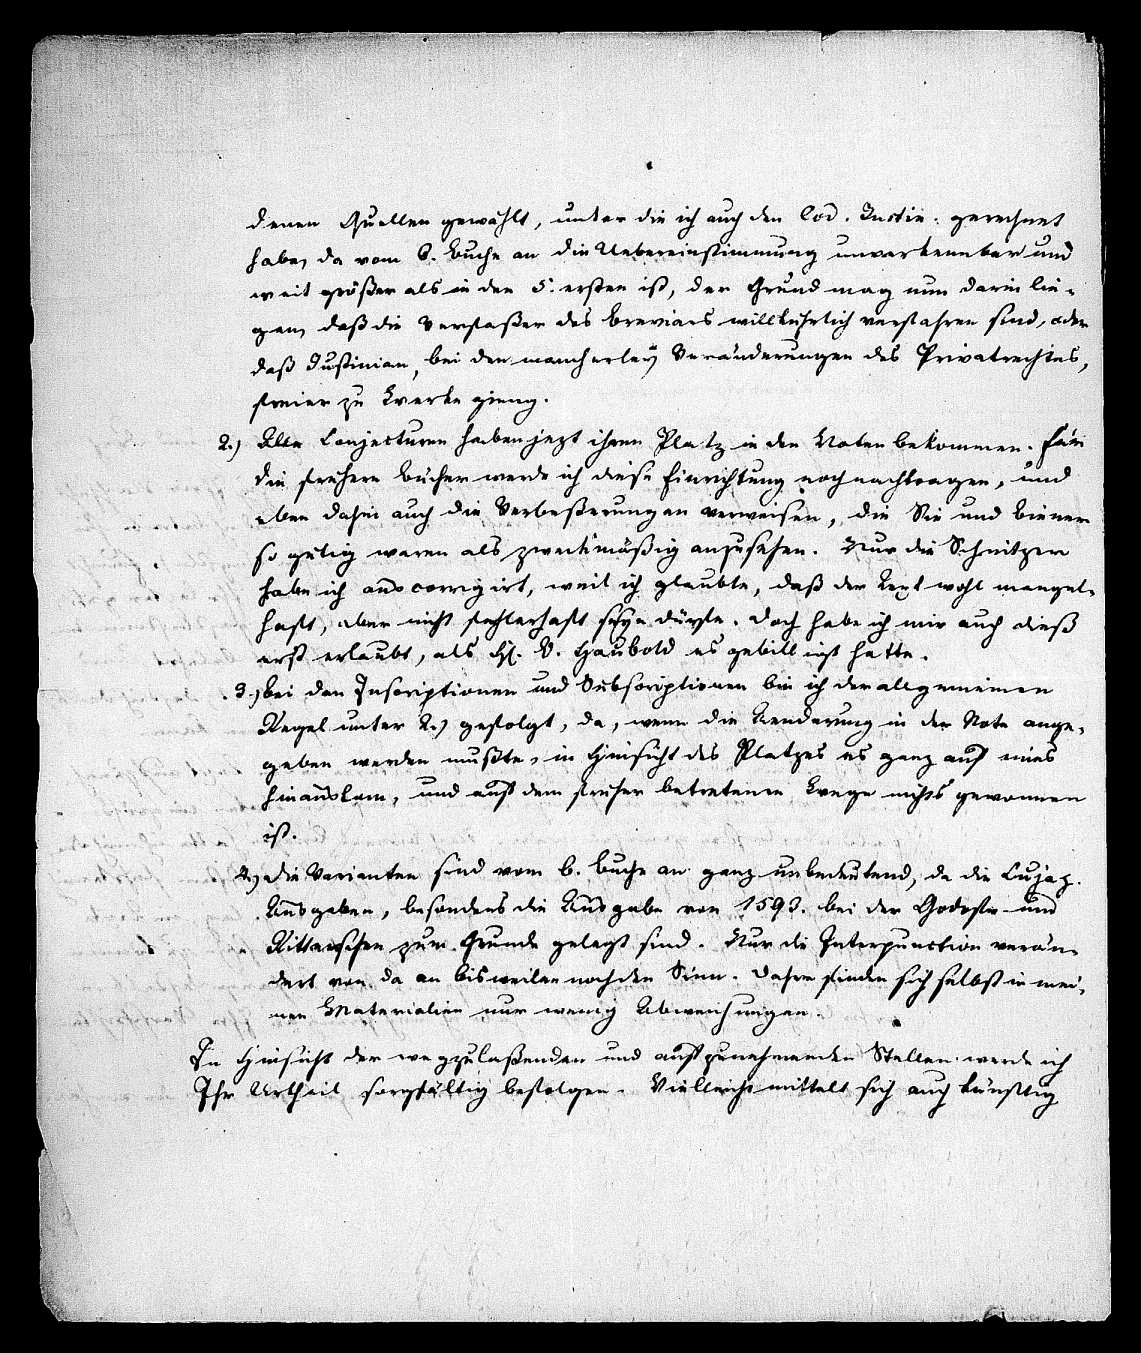 denen Quellen gewählt, unter die ich auch den Cod. Justin. gerechnet
habe, da vom 6. Buche an die Uebereinstimmung unverkennbar und
weit größer als in den 5. ersten ist, der Grund mag nun darin lie-
gen, daß die Verfaßer des Breviars willkührlich verfahren sind, oder
daß Justinian, bei den mancherley Veränderungen des Privatrechtes,
freier zu Werke gieng.
2.) Alle Conjecturen haben jezt ihren Platz in den Noten bekommen. Für
die frühern Bücher werde ich diese Einrichtung noch nachtragen, und
eben dahin auch die Verbeßerungen verweisen, die Sie und Biener
so gütig waren als zweckmäßig anzusehen. Nur die Schnitzer
habe ich aus corrigirt, weil ich glaubte, daß der Text wohl mangel-
haft, aber nicht fehlerhaft seyn dürfte. Doch habe ich mir auch dieß
erst erlaubt, als H. D. Haubold es gebilligt hatte.
3.) Bei den Inscriptionen und Subscriptionen bin ich der allgemeinen
Regel unter 2.) gefolgt, da, wenn die Aenderung in der Note ange-
geben werden mußte, in Hinsicht des Platzes es ganz auf eines
hinauskam, und auf dem früher betretenen Wege nichts gewonnen
ist.
4.) Die Varianten sind vom 6. Buche an ganz unbedeutend, da die Cujaz.
Ausgaben, besonders die Ausgabe von 1593. bei der Godofr. und
Ritterschen zum Grunde gelegt sind. Nur die Interpunction verän-
dert von da an bisweilen noch den Sinn. Daher finden sich selbst in mei-
nen Materialien nur wenig Abweichungen.
In Hinsicht der wegzulaßenden und aufzunehmenden Stellen werde ich
Ihr Urtheil sorgfältig befolgen. Vielleicht mittelt sich auch künftig